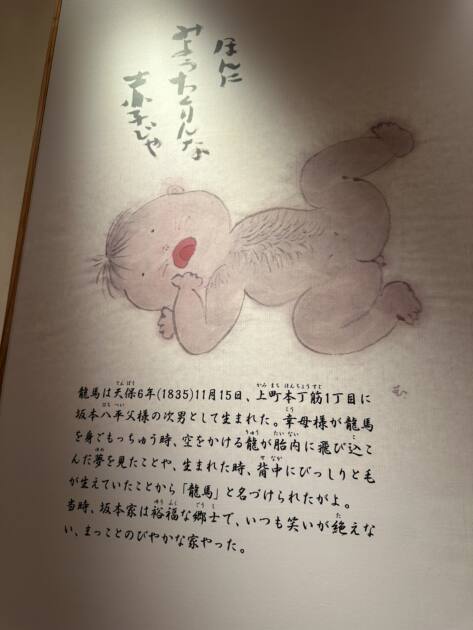 ほんに
みょうちくりんな
赤子じゃ
龍馬は天保6年(1835)11月15日、上町本丁筋1丁目に
坂本八平父様の次男として生まれた。幸母様が龍馬
を身ごもっちゅう時、空をかける龍が胎内に飛び込こ
んだ夢を見たことや、生まれた時、背中にびっしりと毛
が生えていたことから「龍馬」と名づけられたがよ。
当時、坂本家は裕福な郷士で、いつも笑いが絶えな
い、まっことのびやかな家やった。